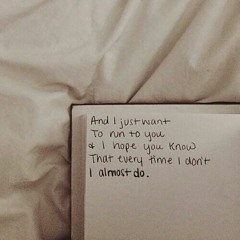 And I just want
To run to you
& I hope you know
That every time I don't
I almost do.